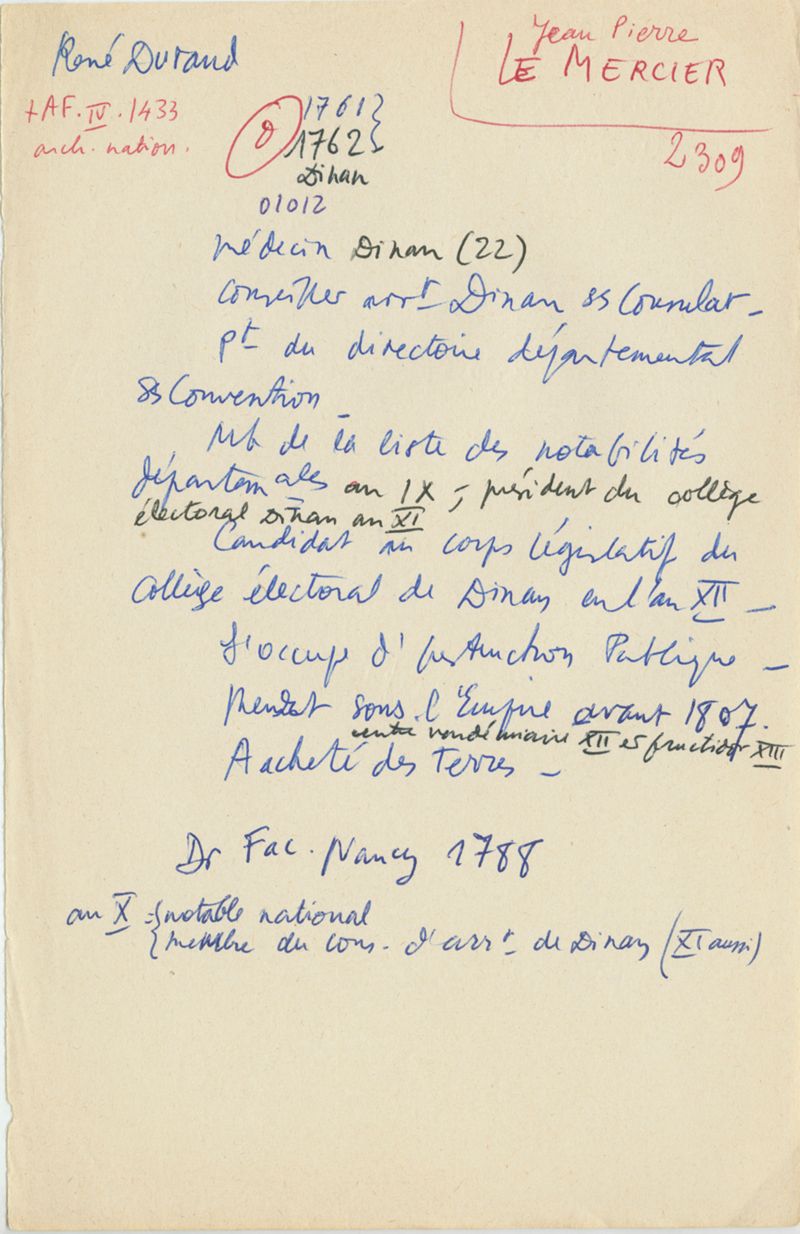 René Durand
Jean Pierre
LE MERCIER
+ AF. IV. 1433
arch. nation.
2309
1761}
1762}
Dinan
01012
médecin Dinan (22)
Conseiller arrt Dinan ss Consulat –
Pt du directoire départemental
ss Convention
Mb de la liste des notabilités
départementales an IX –, président du collège
électoral Dinan an XI
Candidat au corps législatif du
Collège électoral de Dinan en l'an XII –
S'occupe d'Instruction Publique –
Meurt sous l'Empire avant 1807.
entre vendémiaire XII et fructidor XIII
A acheté des terres –
Dr Fac. Nancy 1788
an X {notable national
{membre du cons. d'arrt de Dinan (XI aussi)